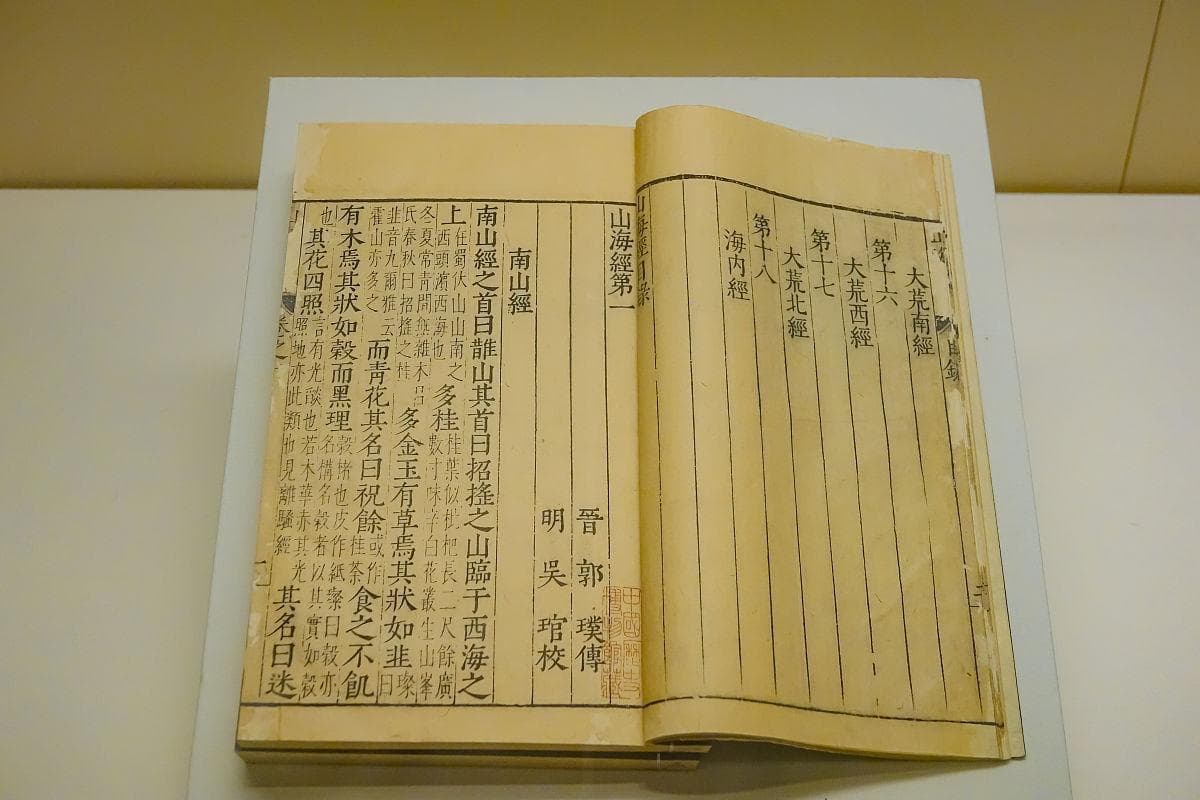 目錄
大荒南經
第十六
大荒西經
第十七
大荒北經
第十八
海內經
山海經目錄
山海經第一
晉郭璞傳
明吳琯校
中國歷史
博物館藏
南山經
南山經之首曰䧿山其首曰招搖之山臨于西海之
上在蜀伏山山南之西頭濱西海也多桂桂葉似枇杷長二尺餘廣數寸味辛白花叢生山峯
冬夏常青間無雜木呂氏春秋曰招搖之桂多金玉有草焉其狀如韭璨曰
韭音九爾雅云霍山亦多之而青花其名曰祝餘或作桂荼食之不飢
有木焉其狀如榖而黑理榖楮也皮作紙璨曰榖亦名構名榖者以其實如榖
也其花四照言有光燄也若木華赤其光照地亦此類也見離騷經其名曰迷
卷之一